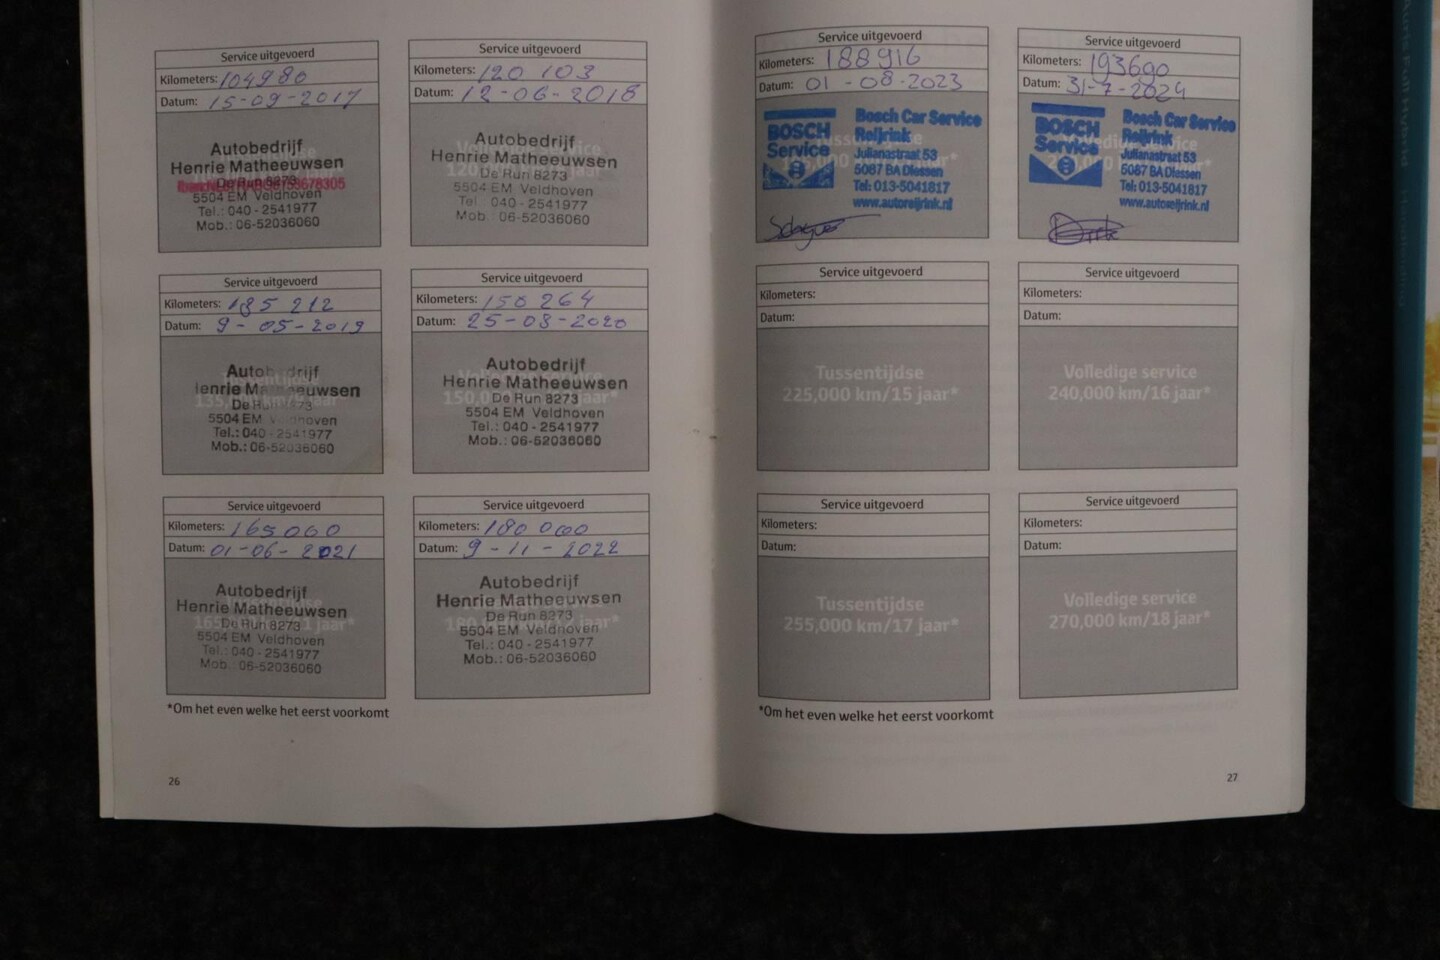 Service uitgevoerd
Kilometers: 104980
Datum: 15-09-2017
Autobedrijf
Henrie Matheeuwsen
De Run 8273
5504 EM Veldhoven
Tel.: 040 - 2541977
Mob.: 06-52036060
Service uitgevoerd
Kilometers: 120 103
Datum: 12-06-2018
Autobedrijf
Henrie Matheeuwsen
De Run 8273
5504 EM Veldhoven
Tel. 040 - 2541977
Mob.: 06-52036060
Service uitgevoerd
Kilometers: 185 212
Datum: 9-05-2019
Autobedrijf
Henrie Matheeuwsen
De Run 8273
5504 EM Veldhoven
Tel.: 040 - 2541977
Mob.: 06-52036060
Service uitgevoerd
Kilometers: 150 264
Datum: 25-03-2020
Autobedrijf
Henrie Matheeuwsen
De Run 8273
5504 EM Veldhoven
Tel.: 040 - 2541977
Mob.: 06-52036060
Service uitgevoerd
Kilometers: 165000
Datum: 01-06-2021
Autobedrijf
Henrie Matheeuwsen
De Run 8273
5504 EM Veldhoven
Tel.: 040 - 2541977
Mob.: 06-52036060
Service uitgevoerd
Kilometers: 180 000
Datum: 9-11-2022
Autobedrijf
Henrie Matheeuwsen
De Run 8273
5504 EM Veldhoven
Tel.: 040 - 2541977
Mob.: 06-52036060
*Om het even welke het eerst voorkomt
26
Service uitgevoerd
Kilometers: 188916
Datum: 01-08-2023
BOSCH
Service
Bosch Car Service
Reijrink
Julianastraat 53
5087 BA Diessen
Tel: 013-5041817
www.autoreijrink.nl
Service uitgevoerd
Kilometers: 193690
Datum: 31-7-2024
BOSCH
Service
Bosch Car Service
Reijrink
Julianastraat 53
5087 BA Diessen
Tel: 013-5041817
www.autoreijrink.nl
Service uitgevoerd
Kilometers:
Datum:
Tussentijdse
225,000 km/15 jaar*
Service uitgevoerd
Kilometers:
Datum:
Volledige service
240,000 km/16 jaar*
Service uitgevoerd
Kilometers:
Datum:
Tussentijdse
255,000 km/17 jaar*
Service uitgevoerd
Kilometers:
Datum:
Volledige service
270,000 km/18 jaar*
*Om het even welke het eerst voorkomt
27